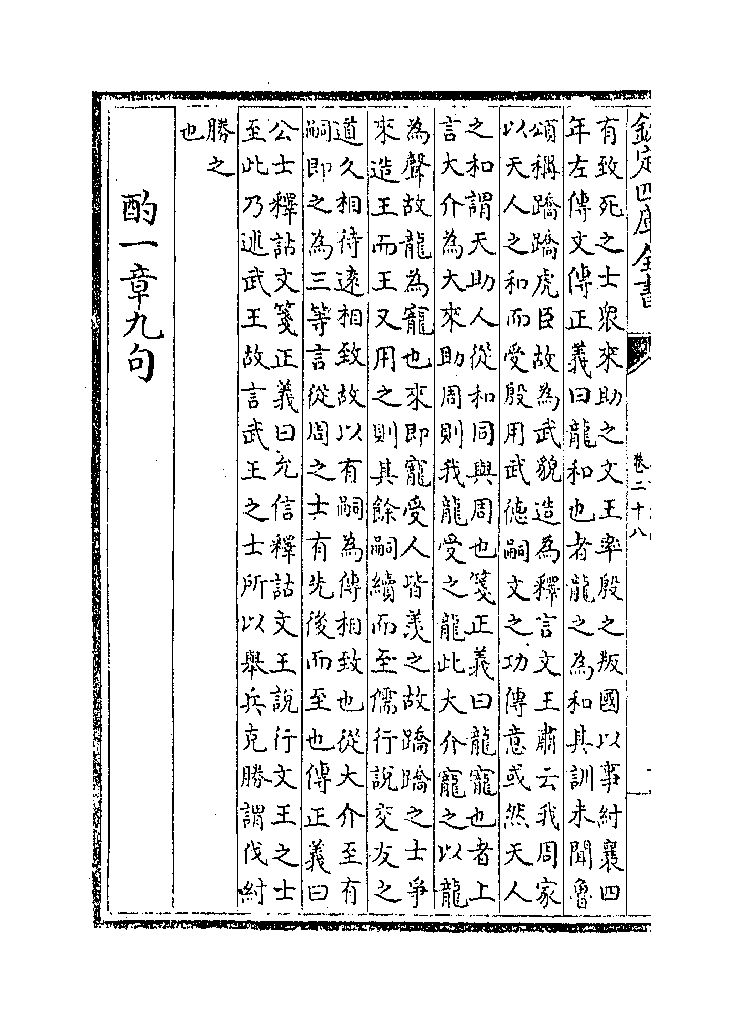 欽定四庫全書 卷二十八
有致死之士衆來助之文王率殷之叛國以事紂襄四
年左傳文傳正義曰龍和也者龍之為和其訓未聞魯
頌稱蹻蹻虎臣故為武貌造為釋言文王肅云我周家
以天人之和而受殷用武德嗣文之功傳意或然天人
之和謂天助人從和同與周也箋正義曰龍寵也者上
言大介為大來助周則我龍受之龍此大介寵之以龍
為聲故龍為寵也來即寵受人皆羨之故蹻蹻之士爭
來造王而王又用之則其餘嗣續而至儒行說交友之
道久相待遠相致故以有嗣為傳相致也從大介至有
嗣即之為三等言從周之士有先後而至也傳正義曰
公士釋詁文箋正義曰允信釋詁文王說行文王之士
至此乃述武王故言武王之士所以舉兵克勝謂伐紂
勝之
也
酌一章九句